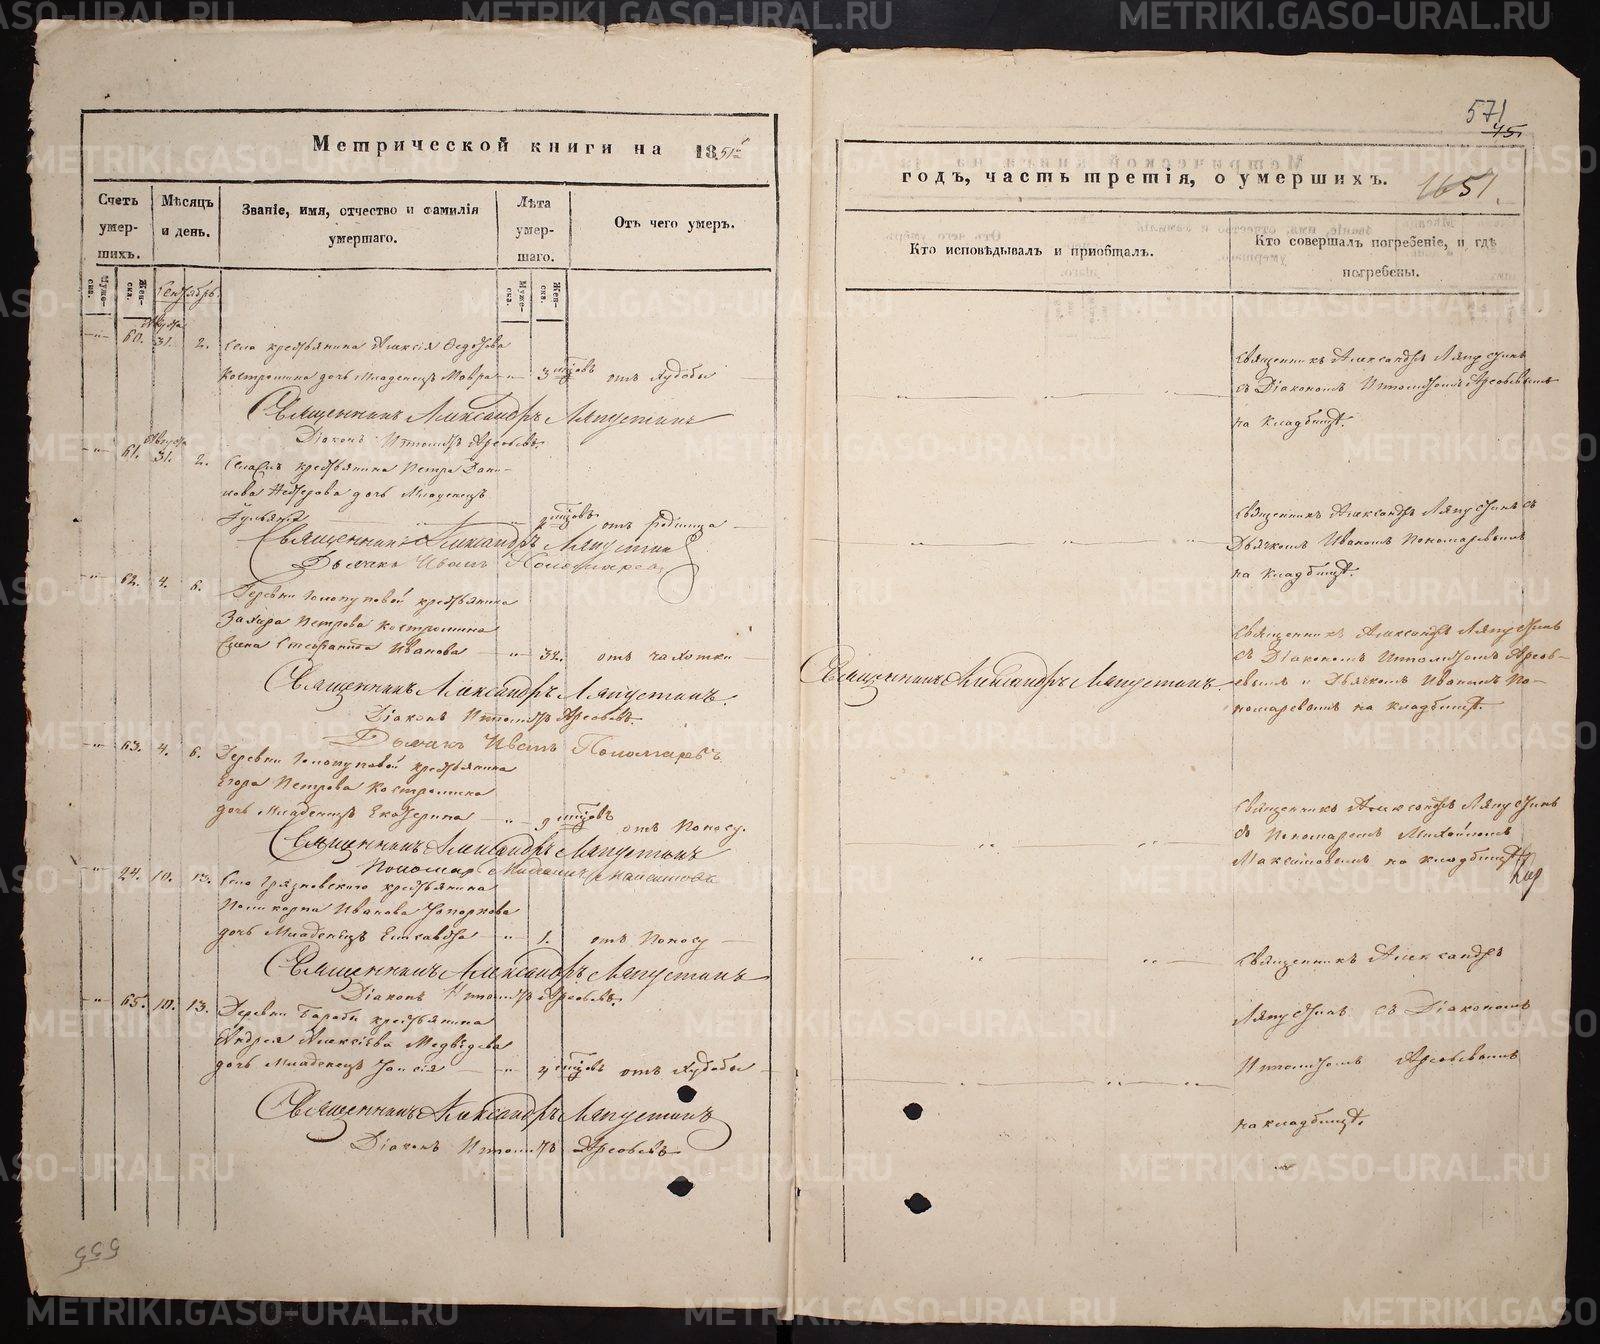 Метрической книги на 1851й
Счетъ умер-шихъ.
Мѣсяцъ и день.
Званіе, имя, отчество и фамилія умершаго.
Лѣта умер-шаго.
Отъ чего умеръ.
Муже-ска.
Жен-ска.
Сентябрь
Муже-ска.
Жен-ска.
Августа
60. 31. 2. Села крестьянина Алексія Федотова
Костромина дочь младенецъ Мавра 3 мѣсцовъ отъ худобы
Священникъ Александръ Ляпустинъ
Діаконъ Ипполитъ Арефьевъ.
Августа
61. 31. 2. крестьянина Петра Дани-
лова дочь младенецъ
мѣсцовъ отъ родимца
Священникъ Александръ Ляпустин
Дьячекъ Иванъ Пономаревъ
62. 4. 6. Деревни крестьянина
Захара Петрова Костромина
жена Стефанида Иванова 32. отъ чахотки
Священникъ Александръ Ляпустинъ.
Діаконъ Ипполитъ Арефьевъ.
Дьячекъ Иванъ Пономаревъ
63. 4. 6. Деревни крестьянина
Егора Петрова Костромина
дочь младенецъ Екатерина 9 мѣсцовъ отъ поносу.
Священникъ Александръ Ляпустинъ
Пономарь Михаилъ Максимовъ
24. 10. 13. Села Грязновского крестьянина
Поликарпа Иванова Топоркова
дочь младенецъ Елисавета 1. отъ поносу
Священникъ Александръ Ляпустинъ
Діаконъ Ипполитъ Арефьевъ.
65. 10. 13. Деревни Барабы крестьянина
Андрея Алексіева Медвѣдева
дочь младенецъ Таисія 4 мѣсцовъ отъ худобы
Священникъ Александръ Ляпустинъ
Діаконъ Ипполитъ Арефьевъ
555
571
45.
годъ, часть третія, о умершихъ.
1651.
Кто исповѣдывалъ и приобщалъ.
Кто совершалъ погребеніе, и гдѣ погребены.
Священникъ Александръ Ляпустинъ
съ Діакономъ Ипполитомъ Арефьевымъ
на кладбищѣ.
Священникъ Александръ Ляпустинъ съ
Дьячкомъ Иваномъ Пономаревымъ
на кладбищѣ.
Священникъ Александръ Ляпустинъ.
Священникъ Александръ Ляпустинъ
съ Діакономъ Ипполитомъ Арефь-
евымъ и Дьячкомъ Иваномъ По-
номаревымъ на кладбищѣ.
Священникъ Александръ Ляпустинъ
съ Пономаремъ Михайломъ
Максимовымъ на кладбищѣ
Священникъ Александръ
Ляпустинъ съ Діакономъ
Ипполитомъ Арефьевымъ
на кладбищѣ.
METRIKI.GASO-URAL.RU